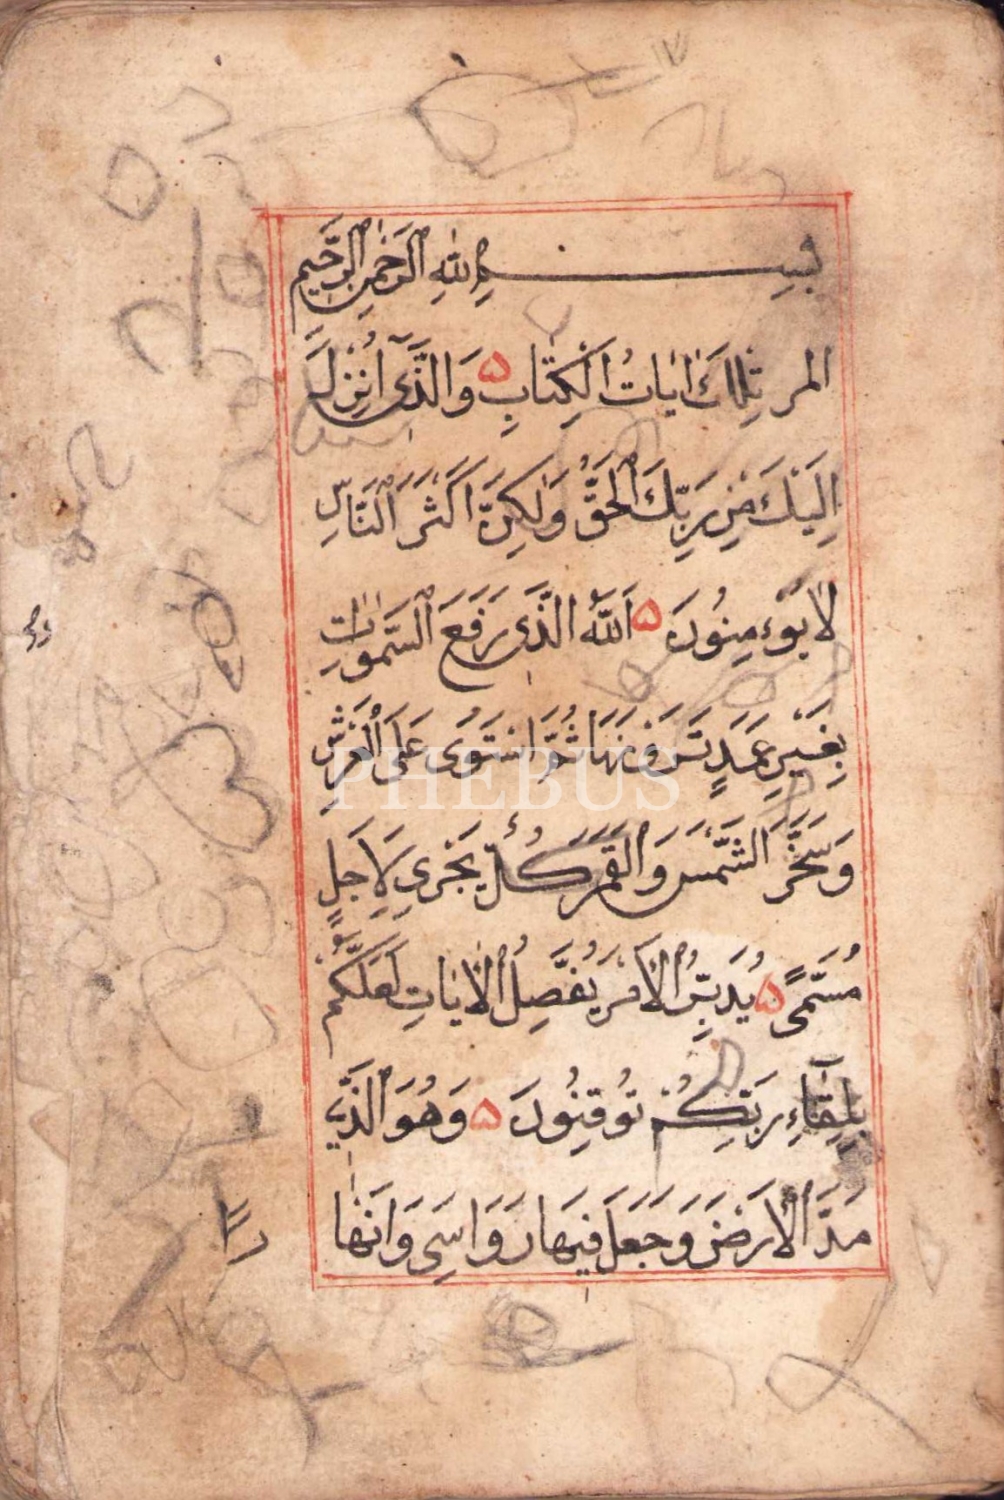 بِسْمِ اللّٰهِ الرَّحْمٰنِ الرَّحِيمِ
المر تِلْكَ اٰيَاتُ الْكِتَابِ ۵ وَالَّذِي اُنْزِلَ
اِلَيْكَ مِنْ رَبِّكَ الْحَقُّ وَلٰكِنَّ اَكْثَرَ النَّاسِ
لَا يُوءْمِنُونَ ۵ اَللّٰهُ الَّذِي رَفَعَ السَّمٰوَاتِ
بِغَيْرِ عَمَدٍ تَرَوْنَهَا ثُمَّ اسْتَوٰى عَلَى الْعَرْشِ
PHEBUS
وَسَخَّرَ الشَّمْسَ وَالْقَمَرَ كُلٌّ يَجْرِي لِاَجَلٍ
مُسَمًّى ۵ يُدَبِّرُ الْاَمْرَ يُفَصِّلُ الْاٰيَاتِ لَعَلَّكُمْ
بِلِقَاءِ رَبِّكُمْ تُوقِنُونَ ۵ وَهُوَ الَّذِي
مَدَّ الْاَرْضَ وَجَعَلَ فِيهَا رَوَاسِيَ وَاَنْهَا